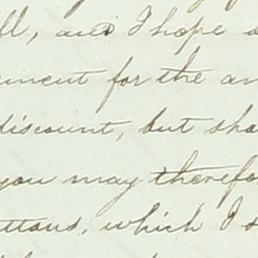 ll, and I hope
ment for the am
discount, but sha
you may therefo
ttons, which I s